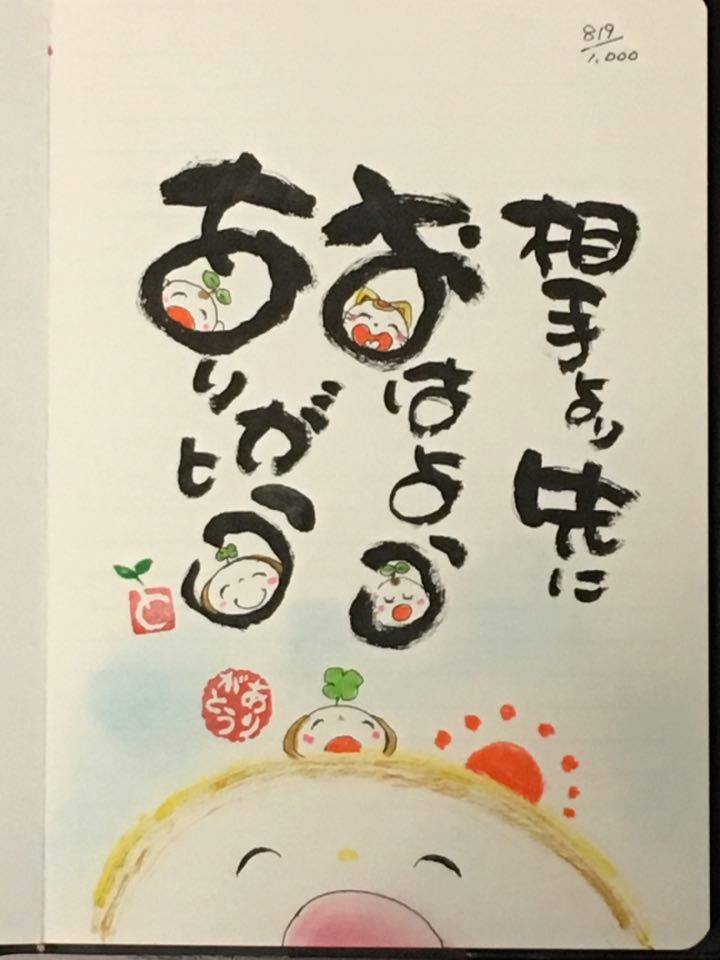 819/1,000
相手より先に
おはよう
ありがとう
と
ありがとう